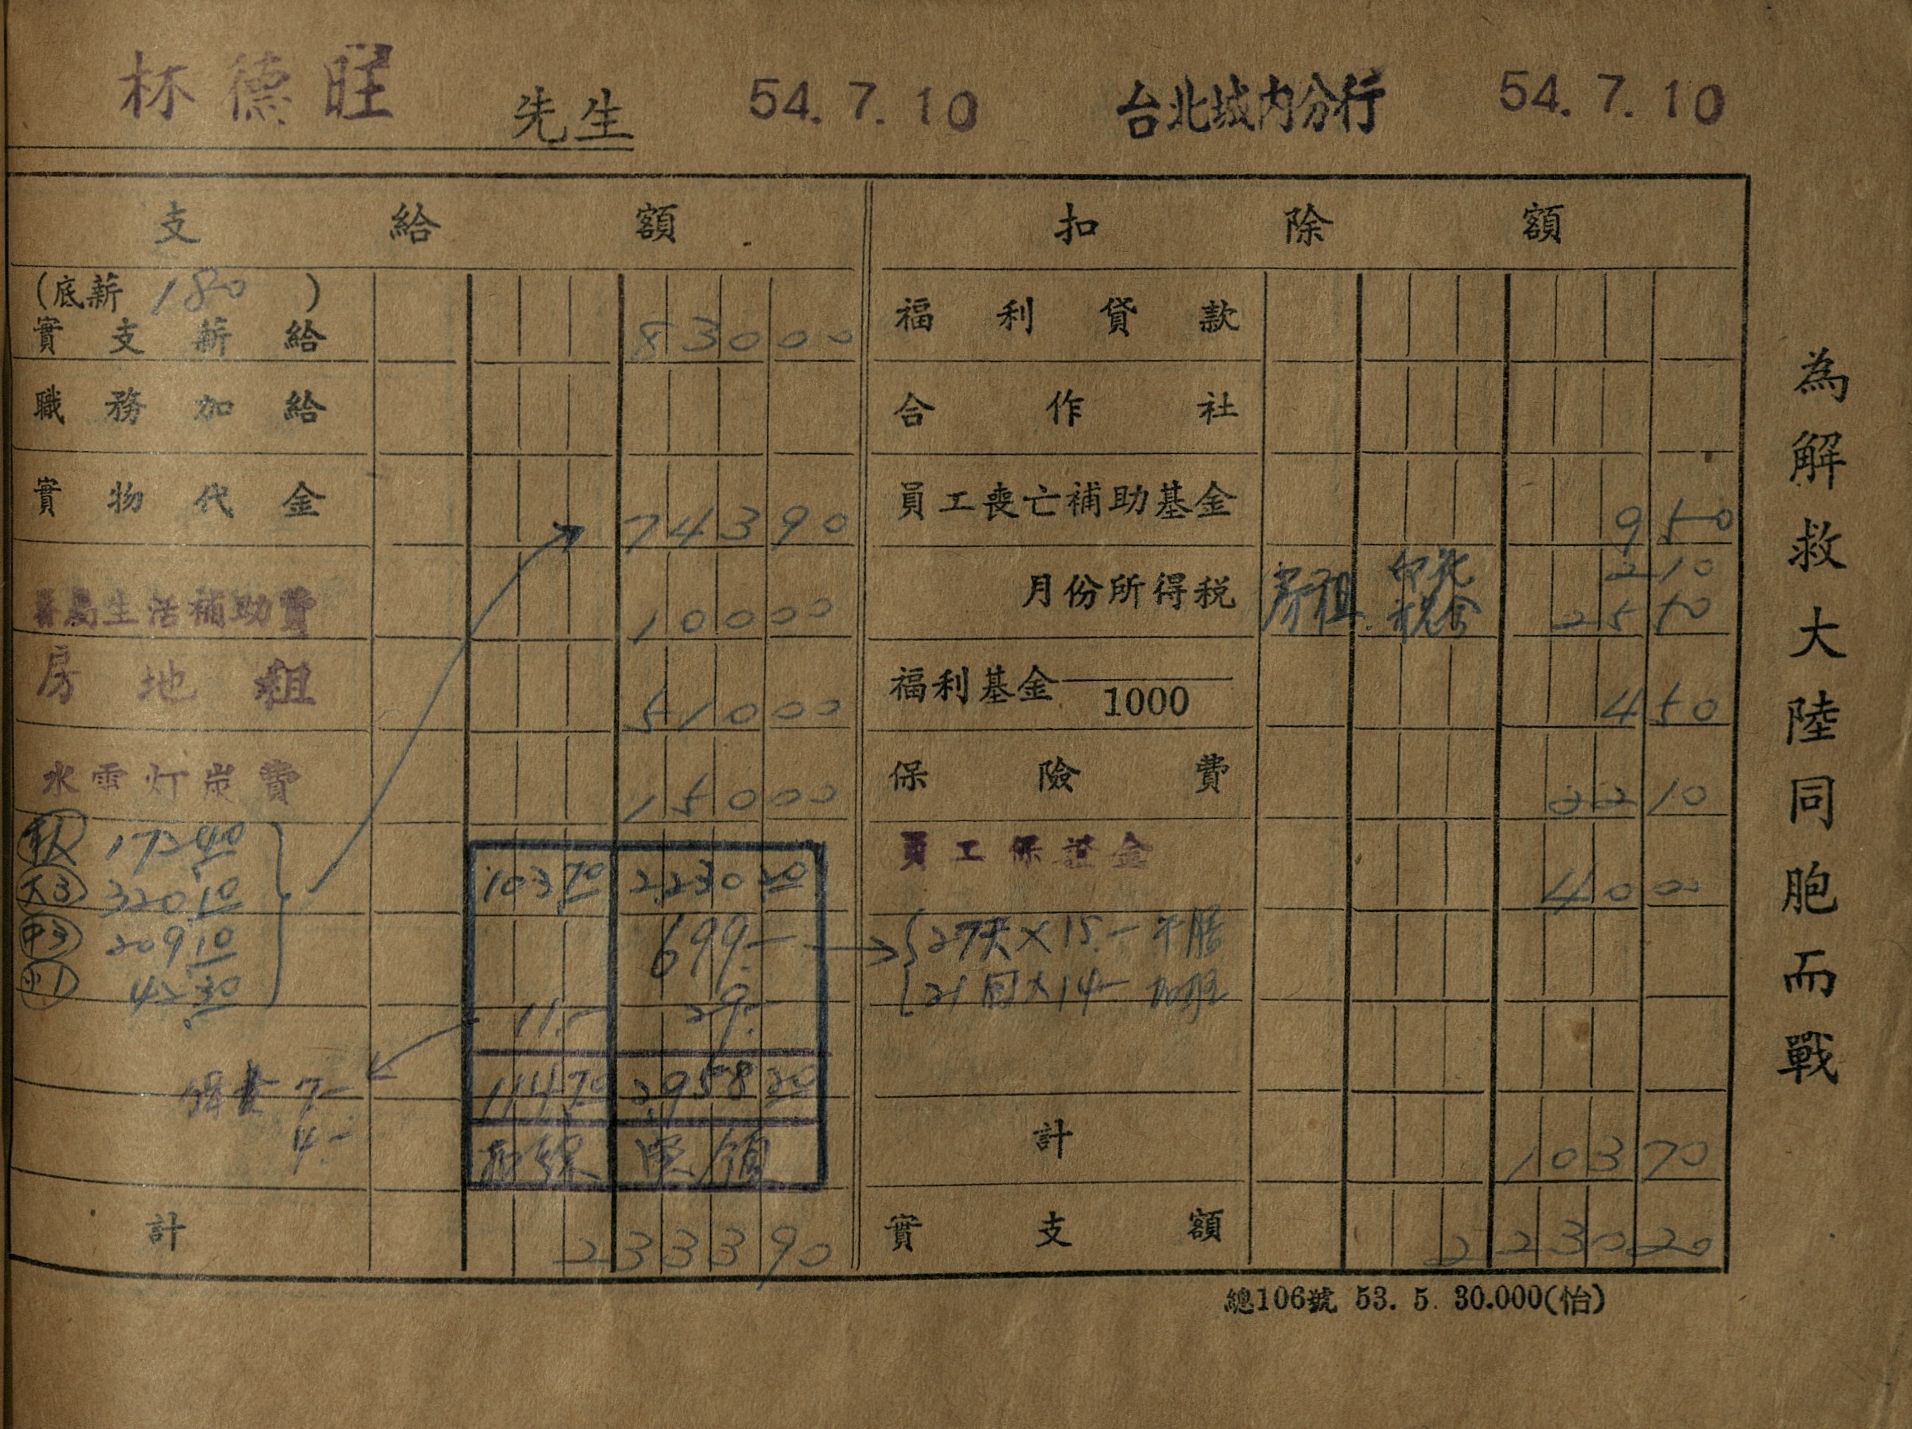 林德旺 先生 54.7.10 台北城内分行 54.7.10
支給額 扣除額
(底薪 180 )
實支薪給 83000
福利貸款
職務加給
合作社
實物代金 74390
員工喪亡補助基金 950
眷屬生活補助費 10000
月份所得稅 房租 印花 210
稅金 2550
房地租 51000
福利基金 1000 450
水電灯炭費 15000
保險費 2210
本人 172.40
員工保證金 4000
103.70 2230.20
大3 320.10
中3 209.10
小1 42.30
699.-
27天×15.-
21回×14.- 加班
11.- 29.-
7.-
4.-
114.70 2958.20
扣繳 實領
計 10370
計 233390
實支額 223020
總106號 53. 5. 30.000(怡)
為解救大陸同胞而戰